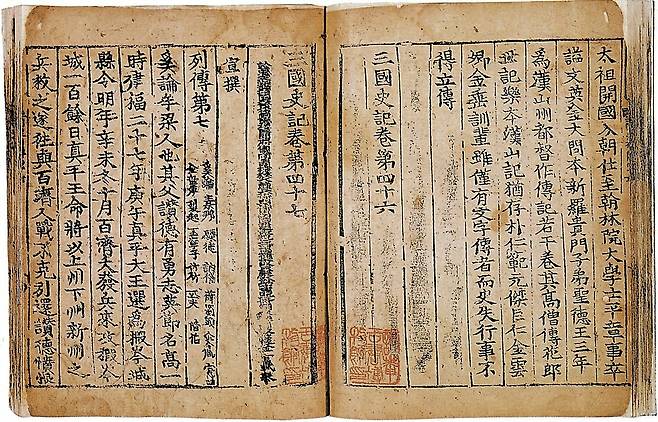 太祖開國入朝仕至翰林院大學士平章事卒
謚文英金大問本新羅貴門子弟聖德王三年
為漢山州都督作傳記若干卷其髙僧傳花郎
世記樂本漢山記猶存朴仁範元傑巨仁金雲
卿金垂訓輩雖僅有文字傳者而史失行事不
得立傳
三國史記卷第四十六
三國史記卷第四十七
宣撰
列傳第七 奚論 素那 驟徒 訥催
奚論牟梁人也其父讚德有勇志英節名高一
時建福二十七年庚午真平大王選為椵岑城
縣令明年辛未冬十月百濟大發兵來攻椵岑
城一百餘日真平王命將以上州下州新州之
兵救之遂往與百濟人戰不克引還讚德憤恨